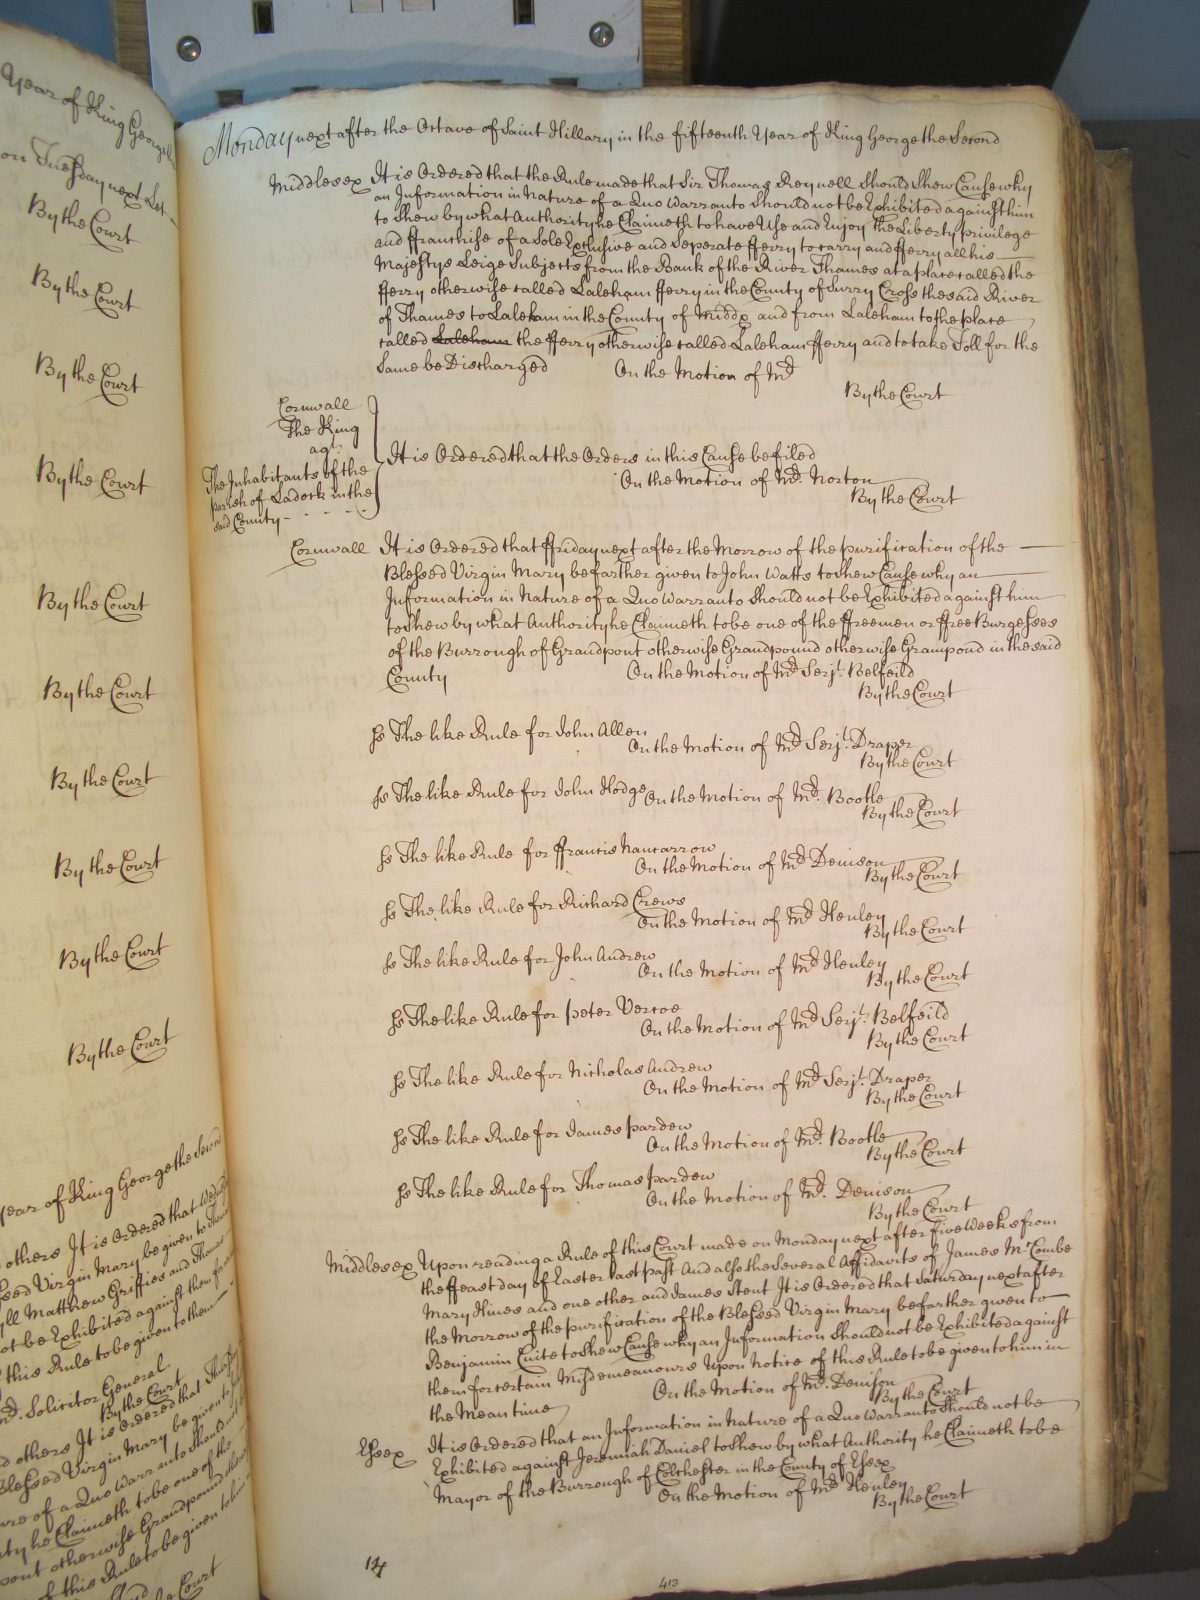 Year of King George
on Tuesday next
By the Court
By the Court
By the Court
By the Court
By the Court
By the Court
By the Court
By the Court
By the Court
By the Court
Year of King George the Second
others It is Ordered that
Blessed Virgin Mary be given to
Matthew Griffies and Thomas
not be Exhibited against them
this Rule to be given to them
Mr. Solicitor General
By the Court
others It is Ordered that
Blessed Virgin Mary be given to
of a Quo Warranto should
he Claimeth to be one of the
otherwise Grandpound
this Rule to be given
Court
Monday next after the Octave of Saint Hillary in the fifteenth Year of King George the Second
Middlesex It is Ordered that the Rule made that Sir Thomas Reynell Should Shew Cause why
an Information in Nature of a Quo Warranto Should not be Exhibited against him
to Shew by what Authority he Claimeth to have Use and Enjoy the Liberty privilege
and ffranchise of a Sole Exclusive and Seperate fferry to carry and fferry all his
Majestys Leige Subjects from the Bank of the River Thames at a place called the
fferry otherwise called Laleham fferry in the County of Surry Cross the said River
of Thames to Laleham in the County of Middx and from Laleham to the place
called Laleham the fferry otherwise called Laleham fferry and to take Toll for the
Same be Discharged On the Motion of Mr
By the Court
Cornwall
The King
agt.
The Inhabitants of the
parish of Ladock in the
said County
It is Ordered that the Orders in this Cause be filed
On the Motion of Mr. Norton
By the Court
Cornwall It is Ordered that ffriday next after the Morrow of the purification of the
Blessed Virgin Mary be farther given to John Watts to Shew Cause why an
Information in Nature of a Quo Warranto Should not be Exhibited against him
to Shew by what Authority he Claimeth to be one of the ffreemen or ffree Burgesses
of the Burrough of Grandpont otherwise Grandpound otherwise Grampond in the said
County On the Motion of Mr Serjt. Belfeild
By the Court
ss The like Rule for John Allen
On the Motion of Mr Serjt. Draper
By the Court
ss The like Rule for John Hodge On the Motion of Mr. Bootle
By the Court
ss The like Rule for ffrancis Nancarrow
On the Motion of Mr Denison
By the Court
ss The like Rule for Richard Crews
On the Motion of Mr Henley
By the Court
ss The like Rule for John Andrew
On the Motion of Mr Henley
By the Court
ss The like Rule for peter Vercoe
On the Motion of Mr Serjt. Belfeild
By the Court
ss The like Rule for Nicholas Andrew
On the Motion of Mr Serjt. Draper
By the Court
ss The like Rule for James pardew
On the Motion of Mr. Bootle
By the Court
ss The like Rule for Thomas pardew
On the Motion of Mr. Denison
By the Court
Middlesex Upon reading a Rule of this Court made on Monday next after five Weeks from
the ffeast day of Easter last past And also the Several Affidavits of James McCombe
Mary Hines and one other and James Stent It is Ordered that Saturday next after
the Morrow of the purification of the Blessed Virgin Mary be farther given to
Benjamin Cuite to Shew Cause why an Information Should not be Exhibited against
them for certain Misdemeanours Upon Notice of this Rule to be given to him in
the Mean time On the Motion of Mr. Denison
By the Court
Essex It is Ordered that an Information in Nature of a Quo Warranto Should not be
Exhibited against Jeremiah Daniel to Shew by what Authority he Claimeth to be
Mayor of the Burrough of Colchester in the County of Essex
On the Motion of Mr Henley
By the Court
14
413